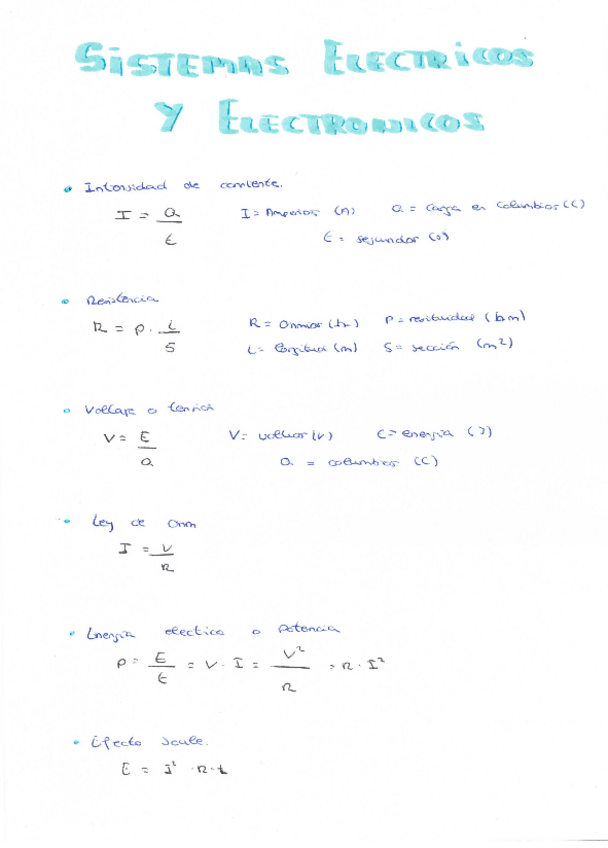 SISTEMAS ELECTRICOS
Y ELECTRONICOS
• Intensidad de corriente.
I = Q / t I = Amperios (A) Q = carga en Columbios (C)
t = segundos (s)
• Resistencia
R = ρ · L / S R = Ohmios (Ω) ρ = resitividad (Ω m)
L = longitud (m) S = sección (m²)
• Voltaje o tensión
V = E / Q V = voltios (V) E = energía (J)
Q = columbios (C)
• Ley de Ohm
I = V / R
• Energía electrica o potencia
P = E / t = V · I = V² / R = R · I²
• Efecto Joule.
E = I² · R · t